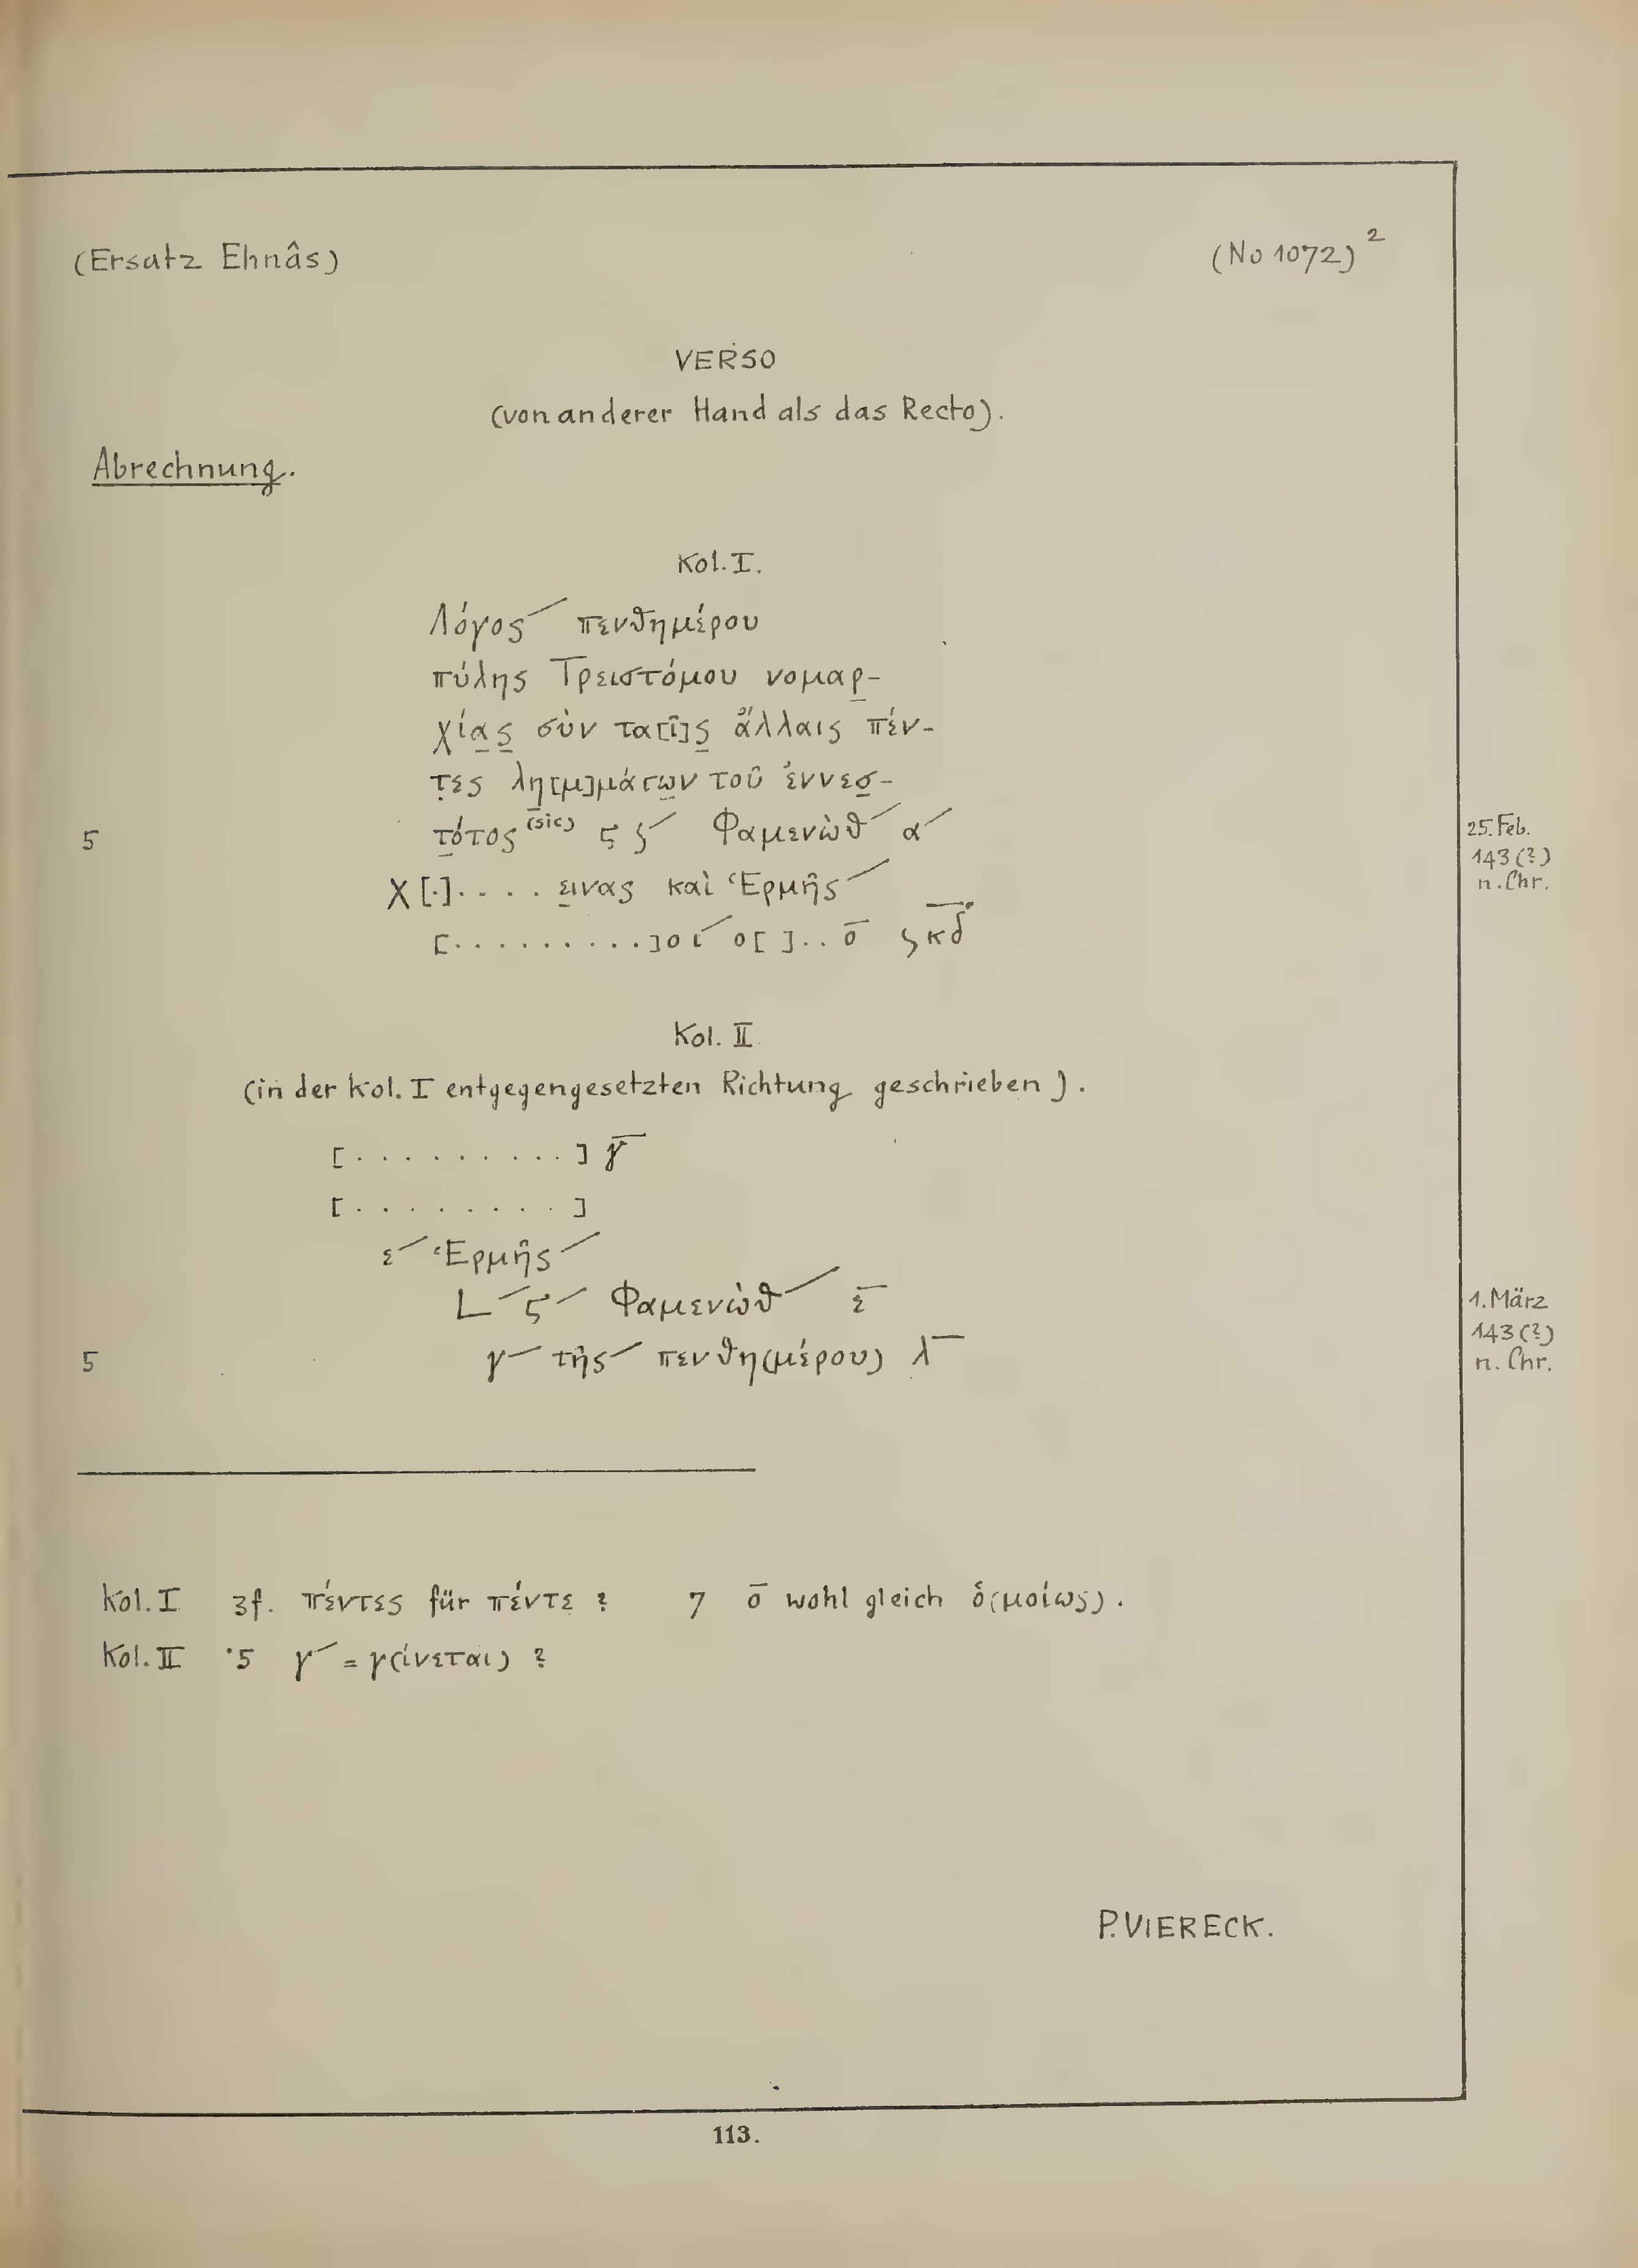 (Ersatz Ehnâs) (No 1072)²
VERSO
(von anderer Hand als das Recto).
Abrechnung.
Kol. I.
Λόγος πενθημέρου
πύλης Τρειστόμου νομαρ̣-
χία̣ς̣ σὺν τα[ῖ]ς̣ ἄλλαις πέν-
τ̣ες λη̣[μ]μάτω̣ν τοῦ ἐννεσ̣-
5 τ̣ότος (sic) ϛ ʃ Φαμενὼθ α 25. Feb. 143 (?) n. Chr.
Χ [.] . . . . ε̣ινας καὶ Ἑρμῆς
[. . . . . . . . . .]οι ο[ ] . . ο̅ ʃ κδ̅
Kol. II
(in der Kol. I entgegengesetzten Richtung geschrieben).
[. . . . . . . . .] γ̅
[. . . . . . . .]
ε Ἑρμῆς
L ϛ Φαμενὼθ ε̅ 1. März 143 (?) n. Chr.
5 γ τῆς πενθη(μέρου) λ̅
Kol. I 3f. πέντες für πέντε ? 7 ο̅ wohl gleich ὁ(μοίως).
Kol. II 5 γ = γ(ίνεται) ?
P. VIERECK.
113.